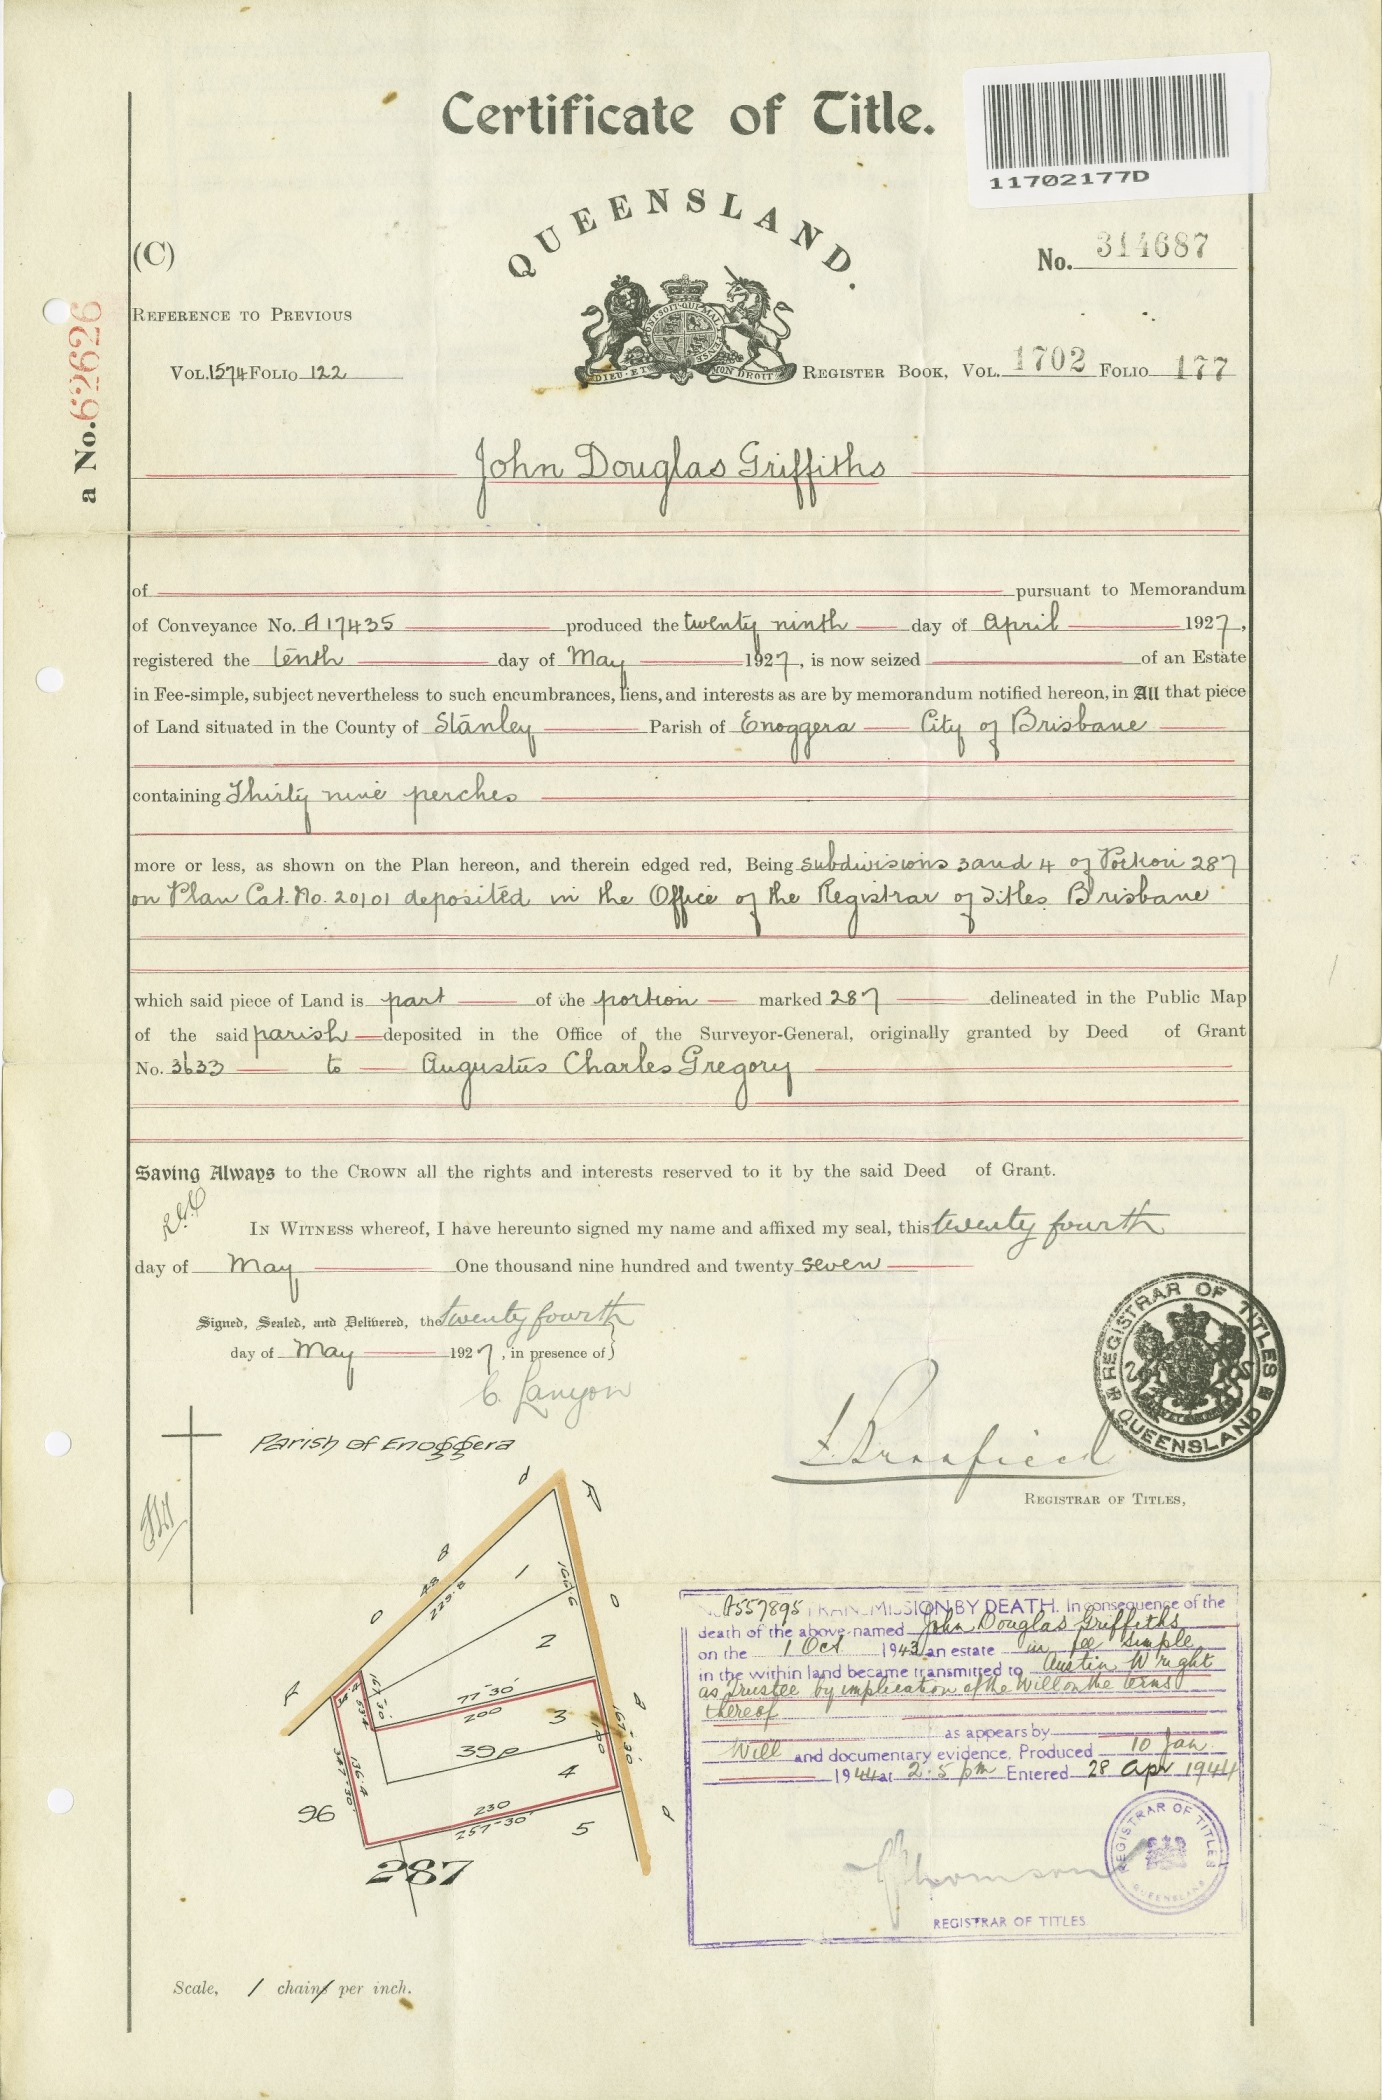 Certificate of Title.
11702177D
QUEENSLAND.
(C)
No. 314687
a No. 62626
REFERENCE TO PREVIOUS
VOL. 1574 FOLIO 122
DIEU ET MON DROIT
REGISTER BOOK, VOL. 1702 FOLIO 177
John Douglas Griffiths
of pursuant to Memorandum
of Conveyance No. A17435 produced the twenty ninth day of April 1927,
registered the tenth day of May 1927, is now seized of an Estate
in Fee-simple, subject nevertheless to such encumbrances, liens, and interests as are by memorandum notified hereon, in All that piece
of Land situated in the County of Stanley Parish of Enoggera City of Brisbane
containing Thirty nine perches
more or less, as shown on the Plan hereon, and therein edged red, Being subdivisions 3 and 4 of Portion 287
on Plan Cat. No. 20101 deposited in the Office of the Registrar of Titles Brisbane
which said piece of Land is part of the portion marked 287 delineated in the Public Map
of the said parish deposited in the Office of the Surveyor-General, originally granted by Deed of Grant
No. 3633 to Augustus Charles Gregory
Saving Always to the CROWN all the rights and interests reserved to it by the said Deed of Grant.
IN WITNESS whereof, I have hereunto signed my name and affixed my seal, this twenty fourth
day of May One thousand nine hundred and twenty seven
Signed, Sealed, and Delivered, the twenty fourth
day of May 1927, in presence of}
C. Lanyon
REGISTRAR OF TITLES QUEENSLAND
REGISTRAR OF TITLES,
Parish of Enoggera
R o a d
R o a d
48
229.8
1
2
77°30'
200
3
39p
4
230
257°30'
5
96
287
A557895 TRANSMISSION BY DEATH. In consequence of the
death of the above-named John Douglas Griffiths
on the 1 Oct 1943 an estate in fee simple
in the within land became transmitted to Austin Wright
as Trustee by implication of the Will on the terms
thereof
as appears by
Will and documentary evidence, Produced 10 Jan.
1944 at 2.5 pm Entered 28 Apr 1944
REGISTRAR OF TITLES QUEENSLAND
REGISTRAR OF TITLES
Scale, 1 chain per inch.